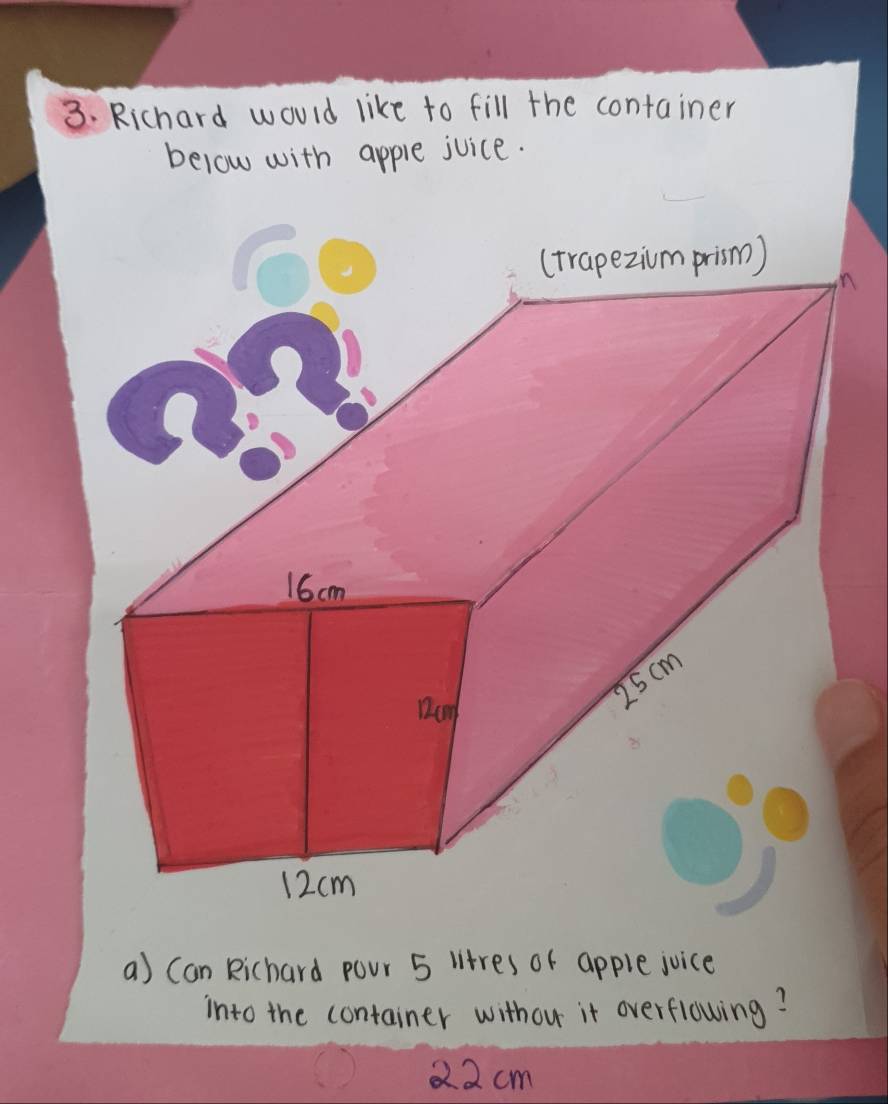 3. Richard would like to fill the container
below with apple juice.
(Trapezium prism)
n
16cm
12cm
25cm
12cm
a) Can Richard pour 5 litres of apple juice
into the container without it overflowing?
22cm